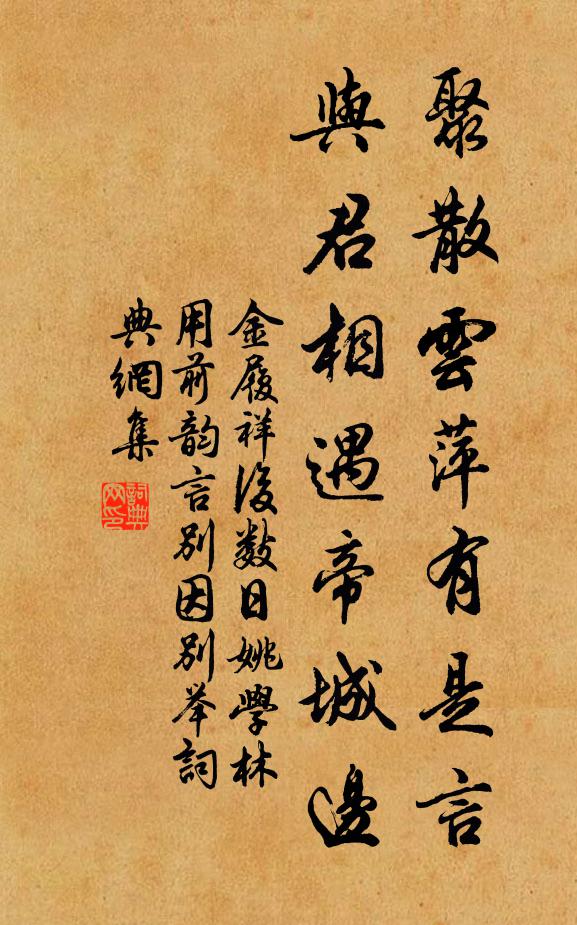 聚散雲萍有是言
與君相遇帝城邊
金履祥後數日姚學林
用前韵言別因別举詞
典網集
詞典